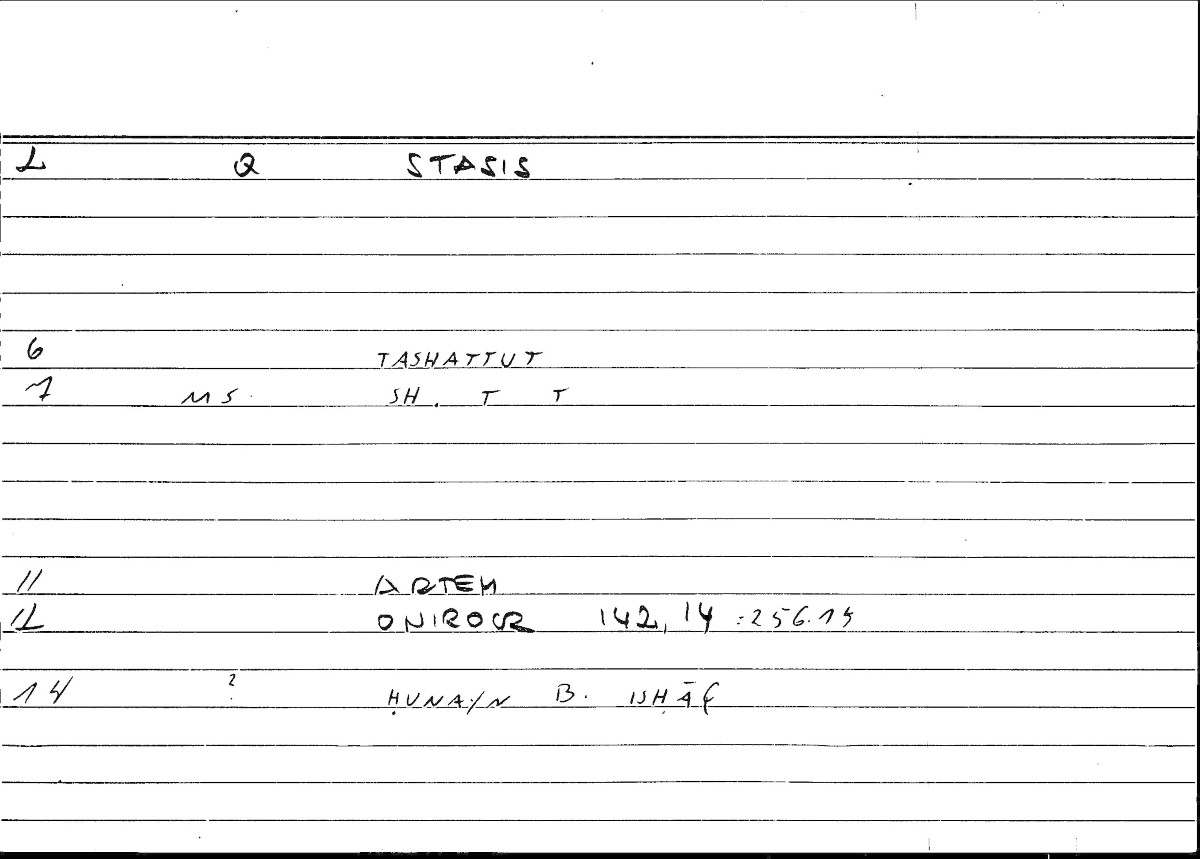 2 Q STASIS
6 TASHATTUT
7 MS. SH. T T
11 ARTEM
12 ONIROCR 142, 14 : 256.15
14 ? ḤUNAYN B. ISḤĀQ